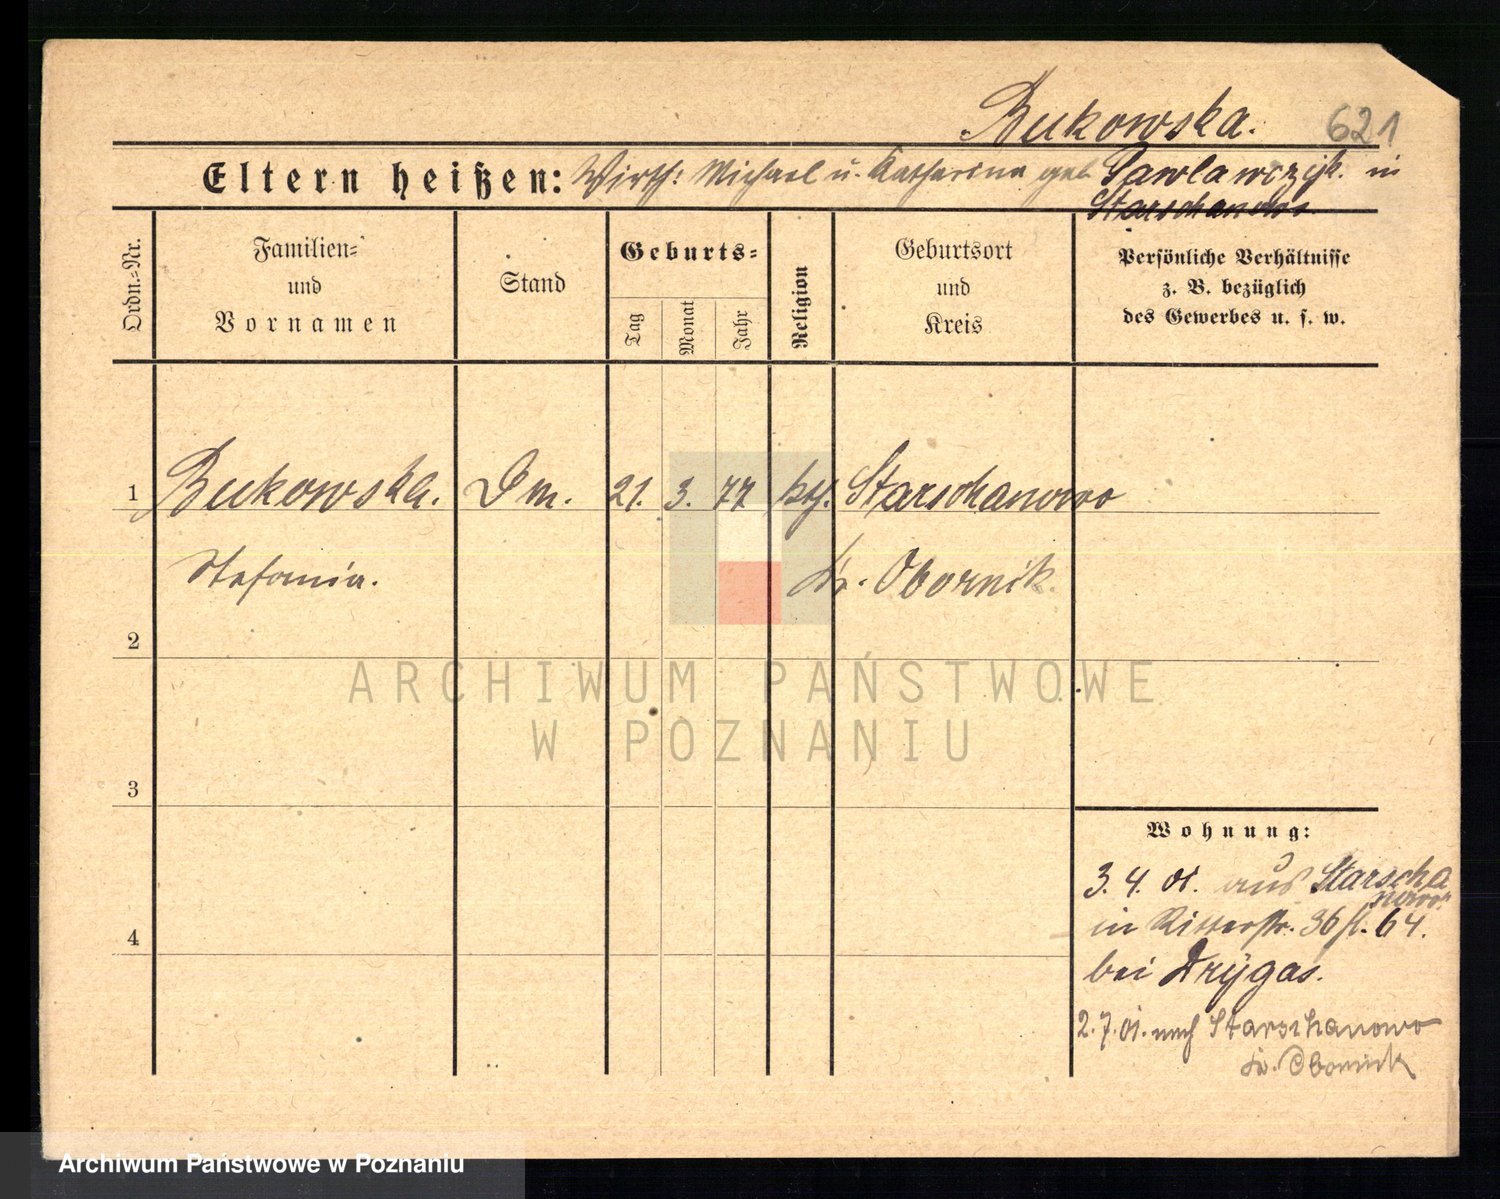 Bukowska. 621
Eltern heißen: Wirth: Michael u. Katharina geb. Pawlawczyk. in
Starschanowo.
Ordn.-Nr.
Familien-
und
Vornamen
Stand
Geburts-
Tag
Monat
Jahr
Religion
Geburtsort
und
Kreis
Persönliche Verhältnisse
z. B. bezüglich
des Gewerbes u. s. w.
1 Bukowska. Dm. 21. 3. 77 kth. Starschanowo
Stefania. Kr. Obornik.
2
ARCHIWUM PAŃSTWOWE
W POZNANIU
3
Wohnung:
3. 4. 01. aus Starscha
nowo.
in Ritterstr. 36 fl. 64.
4
bei Drÿgas.
2. 7. 01. nach Starschanowo
Kr. Obornick
Archiwum Państwowe w Poznaniu